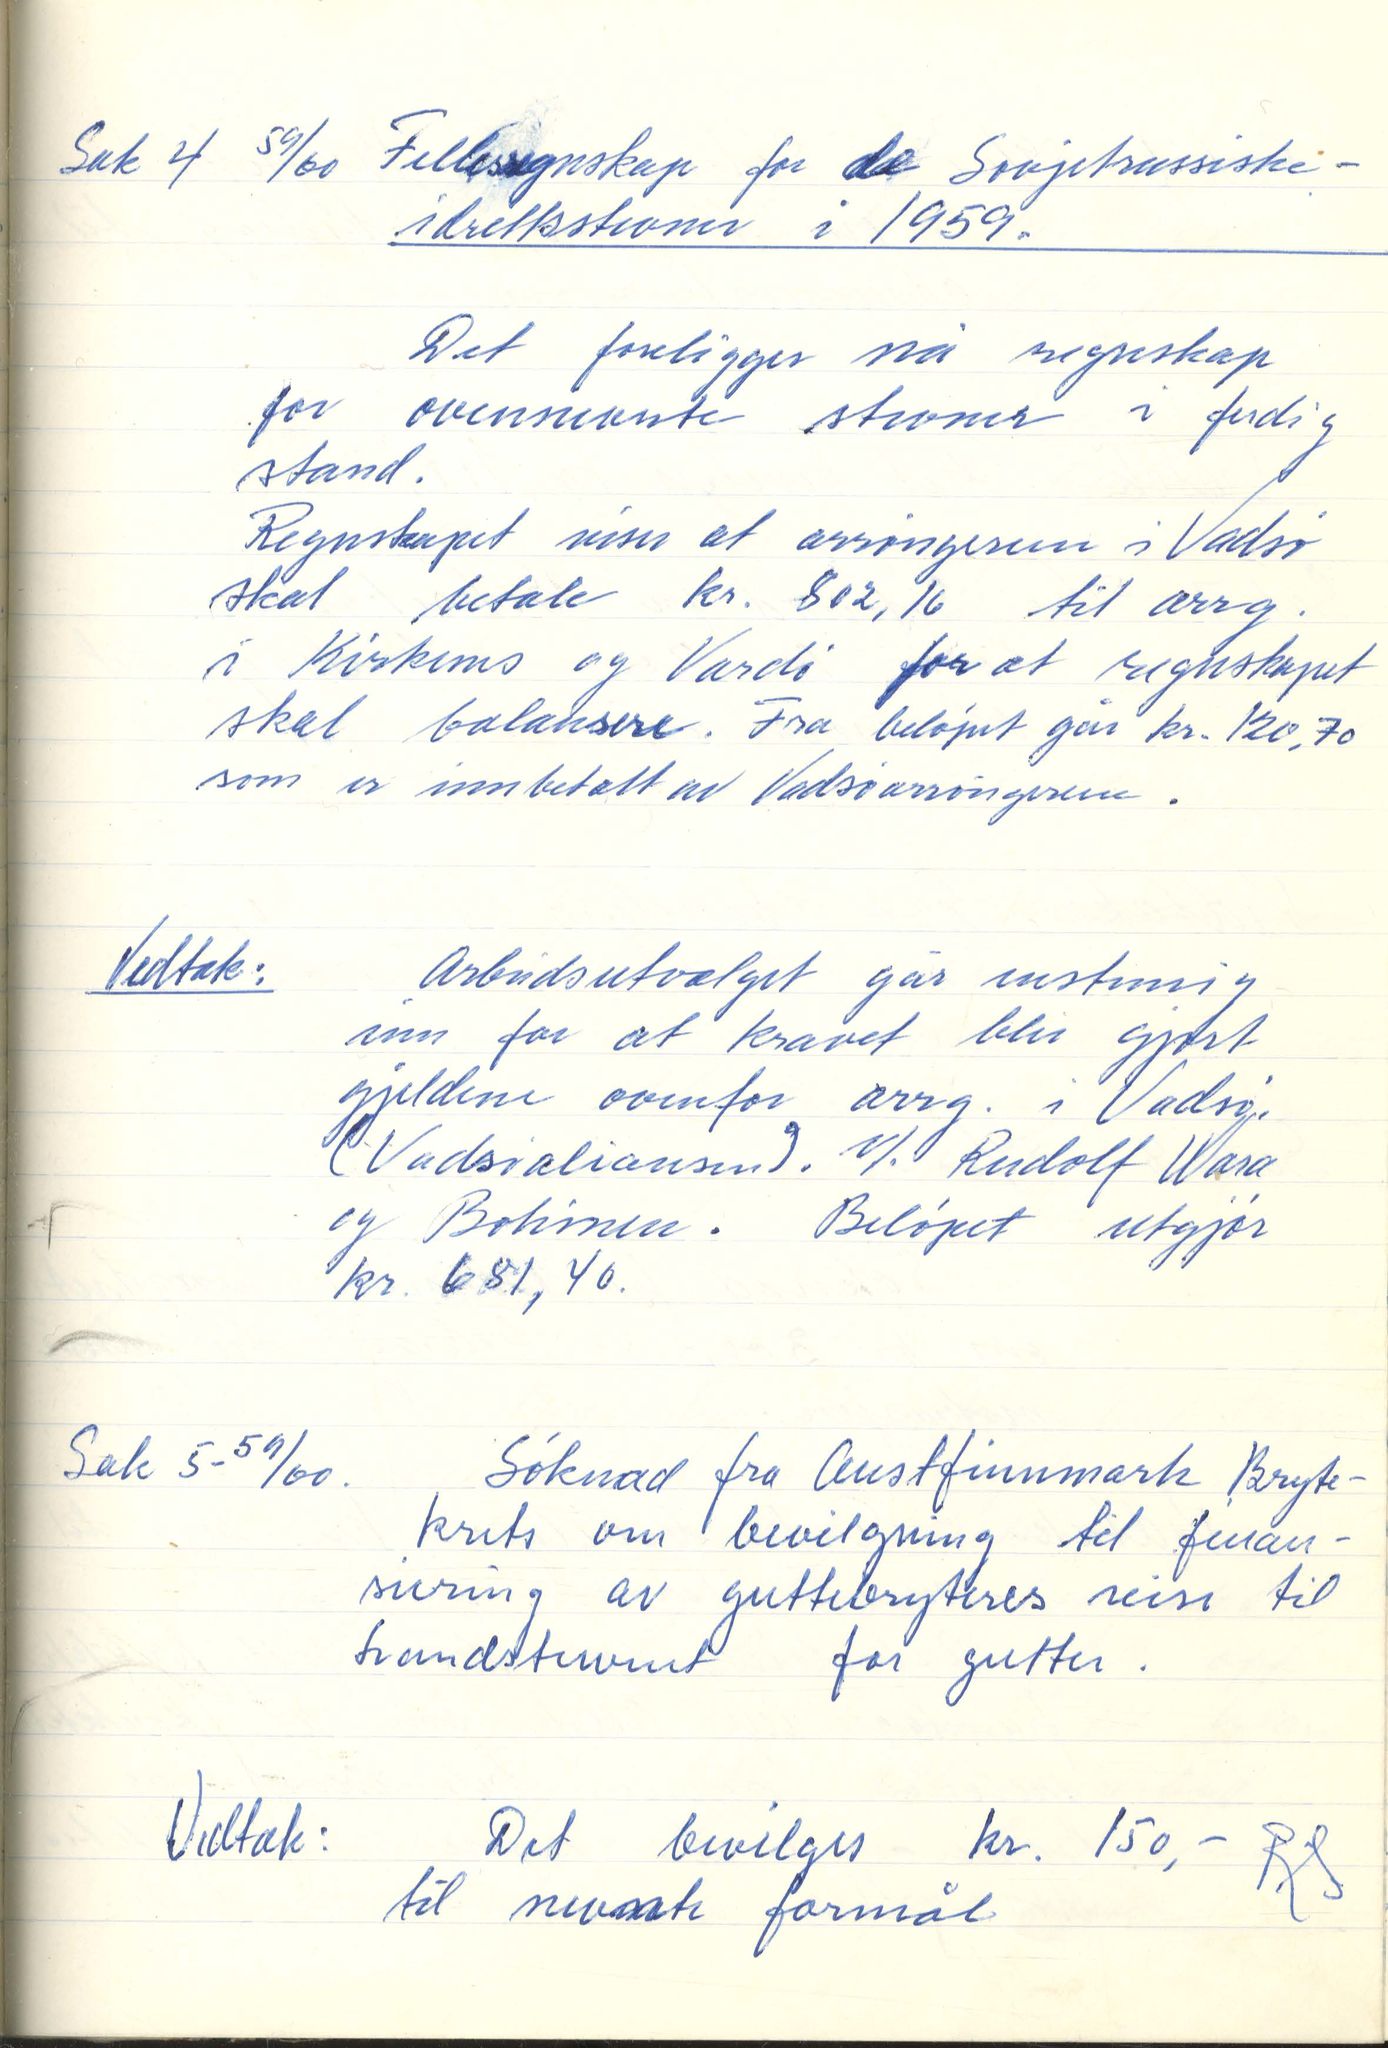 Sak 4 59/60 Fellesregnskap for de Sovjetrussiske-
idrettsstevner i 1959.
Det foreligger nå regnskap
for ovennevnte stevner i ferdig
stand.
Regnskapet viser at arrangørene i Vadsö
skal betale kr. 802,16 til arrg.
i Kirkenes og Vardö for at regnskapet
skal balansere. Fra belöpet går kr. 120,70
som er innbetalt av Vadsöarrangörene.
Vedtak: Arbeidsutvalget går enstemmig
inn for at kravet blir gjort
gjeldene ovenfor arrg. i Vadsö.
(Vadsöaliansen). v/. Rudolf Wara
og Bohinen. Belöpet utgjör
kr. 681,40.
Sak 5-59/60. Söknad fra Austfinnmark Bryte-
krets om bevilgning til finan-
siering av guttebryteres reise til
Landsstevnet for gutter.
Vedtak: Det bevilges kr. 150,- RS
til nevnte formål